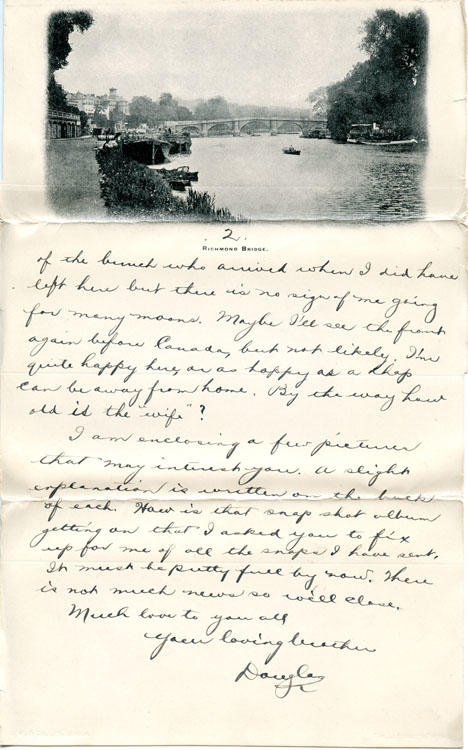 2.
RICHMOND BRIDGE.
of the bunch who arrived when I did have
left here but there is no sign of me going
for many moons. Maybe I'll see the front
again before Canada, but not likely. I'm
quite happy here, or as happy as a chap
can be away from home. By the way how
old is the "wife"?
I am enclosing a few pictures
that may interest you. A slight
explanation is written on the back
of each. How is that snap shot album
getting on that I asked you to fix
up for me of all the snaps I have sent.
It must be pretty full by now. There
is not much news so will close.
Much love to you all
Your loving brother
Douglas